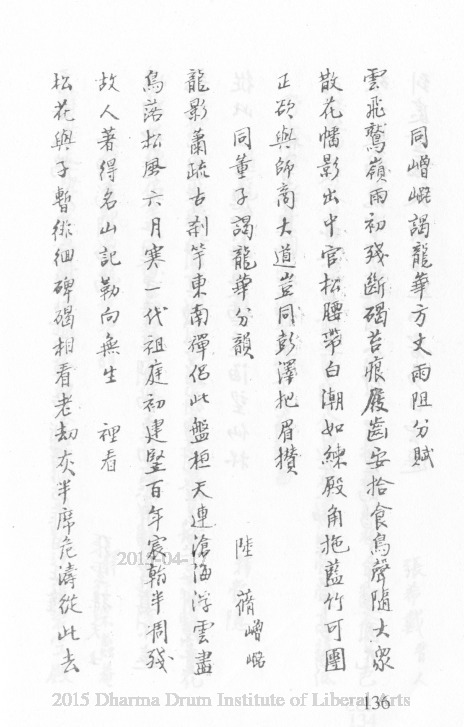 同嶒崐謁龍華方丈雨阻分賦
雲飛鷲嶺雨初殘斷碣苔痕屐齒安拾食鳥聲隨大眾
散花幡影出中官松腰帶白潮如練殿角拖藍竹可團
正欲與師商大道豈同彭澤把眉攢
同董子謁龍華分韻 陸 蓨嶒崐
龍影蕭疏古剎竿東南禪侶此盤桓天連滄海浮雲盡
鳥落松風六月寒一代祖庭初建豎百年宸翰半凋殘
故人著得名山記勒向無生 裡看
松花與子暫徘徊碑碣相看老劫灰半席危濤從此去
136
2015 Dharma Drum Institute of Liberal Arts